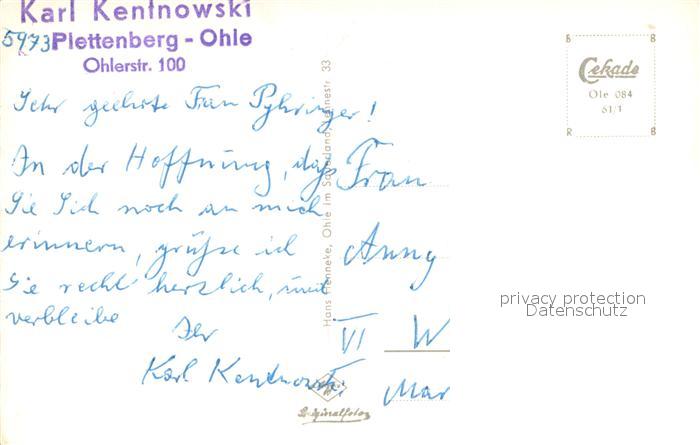 Karl Kentnowski
5973 Plettenberg - Ohle
Ohlerstr. 100
Sehr geehrte Frau Pyhringer!
In der Hoffnung, daß
Sie Sich noch an mich
erinnern, grüße ich
Sie recht herzlich, und
verbleibe
Ihr
Karl Kentnowski
Hans Henneke, Ohle im Sauerland, Lennestr 33
Originalfoto
Cekade
Ole 084
61/1
B
B
R
B
Frau
Anny
VI W
Mar
privacy protection
Datenschutz